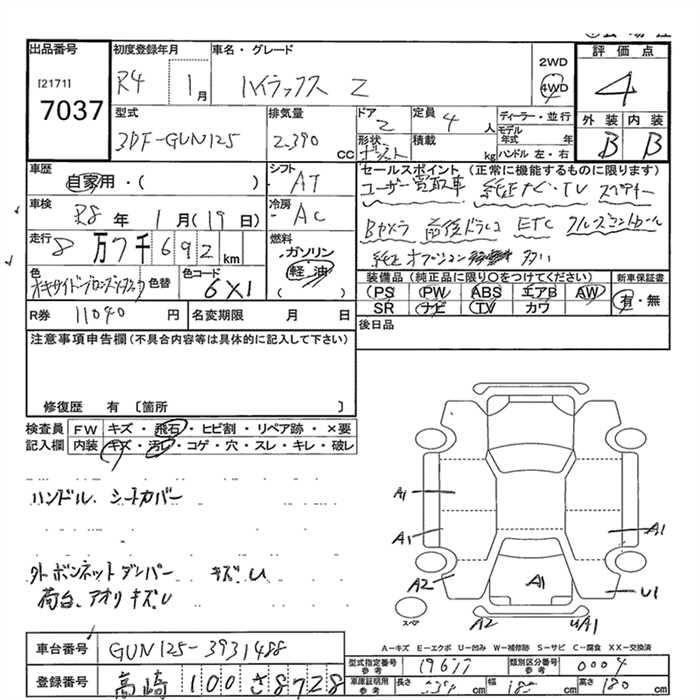 出品番号
[2171]
7037
初度登録年月
R4 1月
車名・グレード
ハイラックス Z
2WD
4WD
評価点
4
外装 内装
B B
型式
3DF-GUN125
排気量
2.390 CC
ドア 2
形状
定員 4 人
積載 kg
ディーラー・並行
モデル年式 年
ハンドル 左・右
車歴
自家用・( )
シフト AT
車検
R8年 1月(19日)
冷房 AC
走行
8万7千692km
燃料
ガソリン
軽油
( )
色
オキサイドブロンズメタリック
色替
色コード
6X1
セールスポイント (正常に機能するものに限ります)
ユーザー買取車 純正ナビ・TV スペアキー
Bカメラ 前後ドラレコ ETC クルーズコントロール
純正オプション 多数
装備品 (純正品に限り○をつけてください)
PS PW ABS エアB AW
SR ナビ TV カワ
新車保証書
有・無
R券 11040 円
名変期限 月 日
後日品
注意事項申告欄(不具合内容等は具体的に記入して下さい)
修復歴 有 〔箇所 〕
検査員記入欄
FW キズ・飛石・ヒビ割・リペア跡・×要
内装 キズ・汚レ・コゲ・穴・スレ・キレ・破レ
ハンドル、シートカバー
外 ボンネットダンパー キズU
荷台、アオリ キズU
A1
A1
A1
A2
A1
U1
A2
UA1
スペア
A-キズ E-エクボ U-凹み W-補修跡 S-サビ C-腐食 XX-交換済
車台番号 GUN125-3931488
登録番号 高崎 100 さ 8728
型式指定番号 参考 19677
類別区分番号 参考 0004
車庫証明用 参考
長さ cm 幅 cm 高さ 180 cm